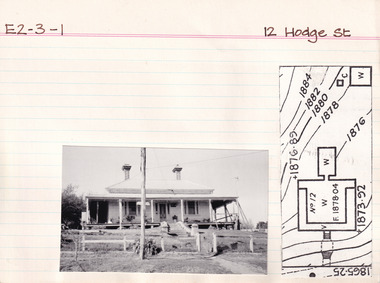 E2-3-1
12 Hodge St
1884
1882
1880
1878
1876
C
W
+1876·89
W
No 12
W
F.1878·04
V
1873·92
1865·25